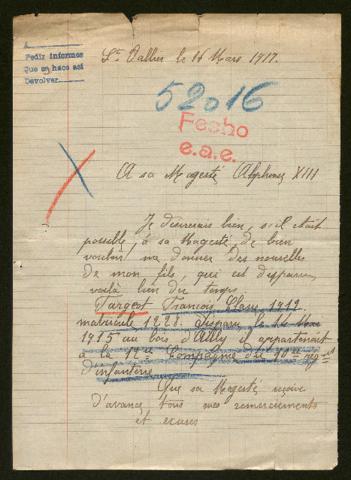 A
Pedir informes
Que se hace así
Devolver
St Vallier le 16 Mars 1917.
52016
Fecho
e.a.e.
A sa Magesté Alphonse XIII
Je désirerais bien, s'il était
possible, à sa Magesté, de bien
vouloir me donner des nouvelles
de mon fils, qui est disparu
voilà bien du temps
Targeot François Classe 1912
matricule 1228. Disparu le 14 Mai
1915 au bois d'Ailly il appartenait
à la 12e Compagnie du 10me regmt
d'infanterie
Que sa Magesté reçoive
d'avance tous mes remerciements
et